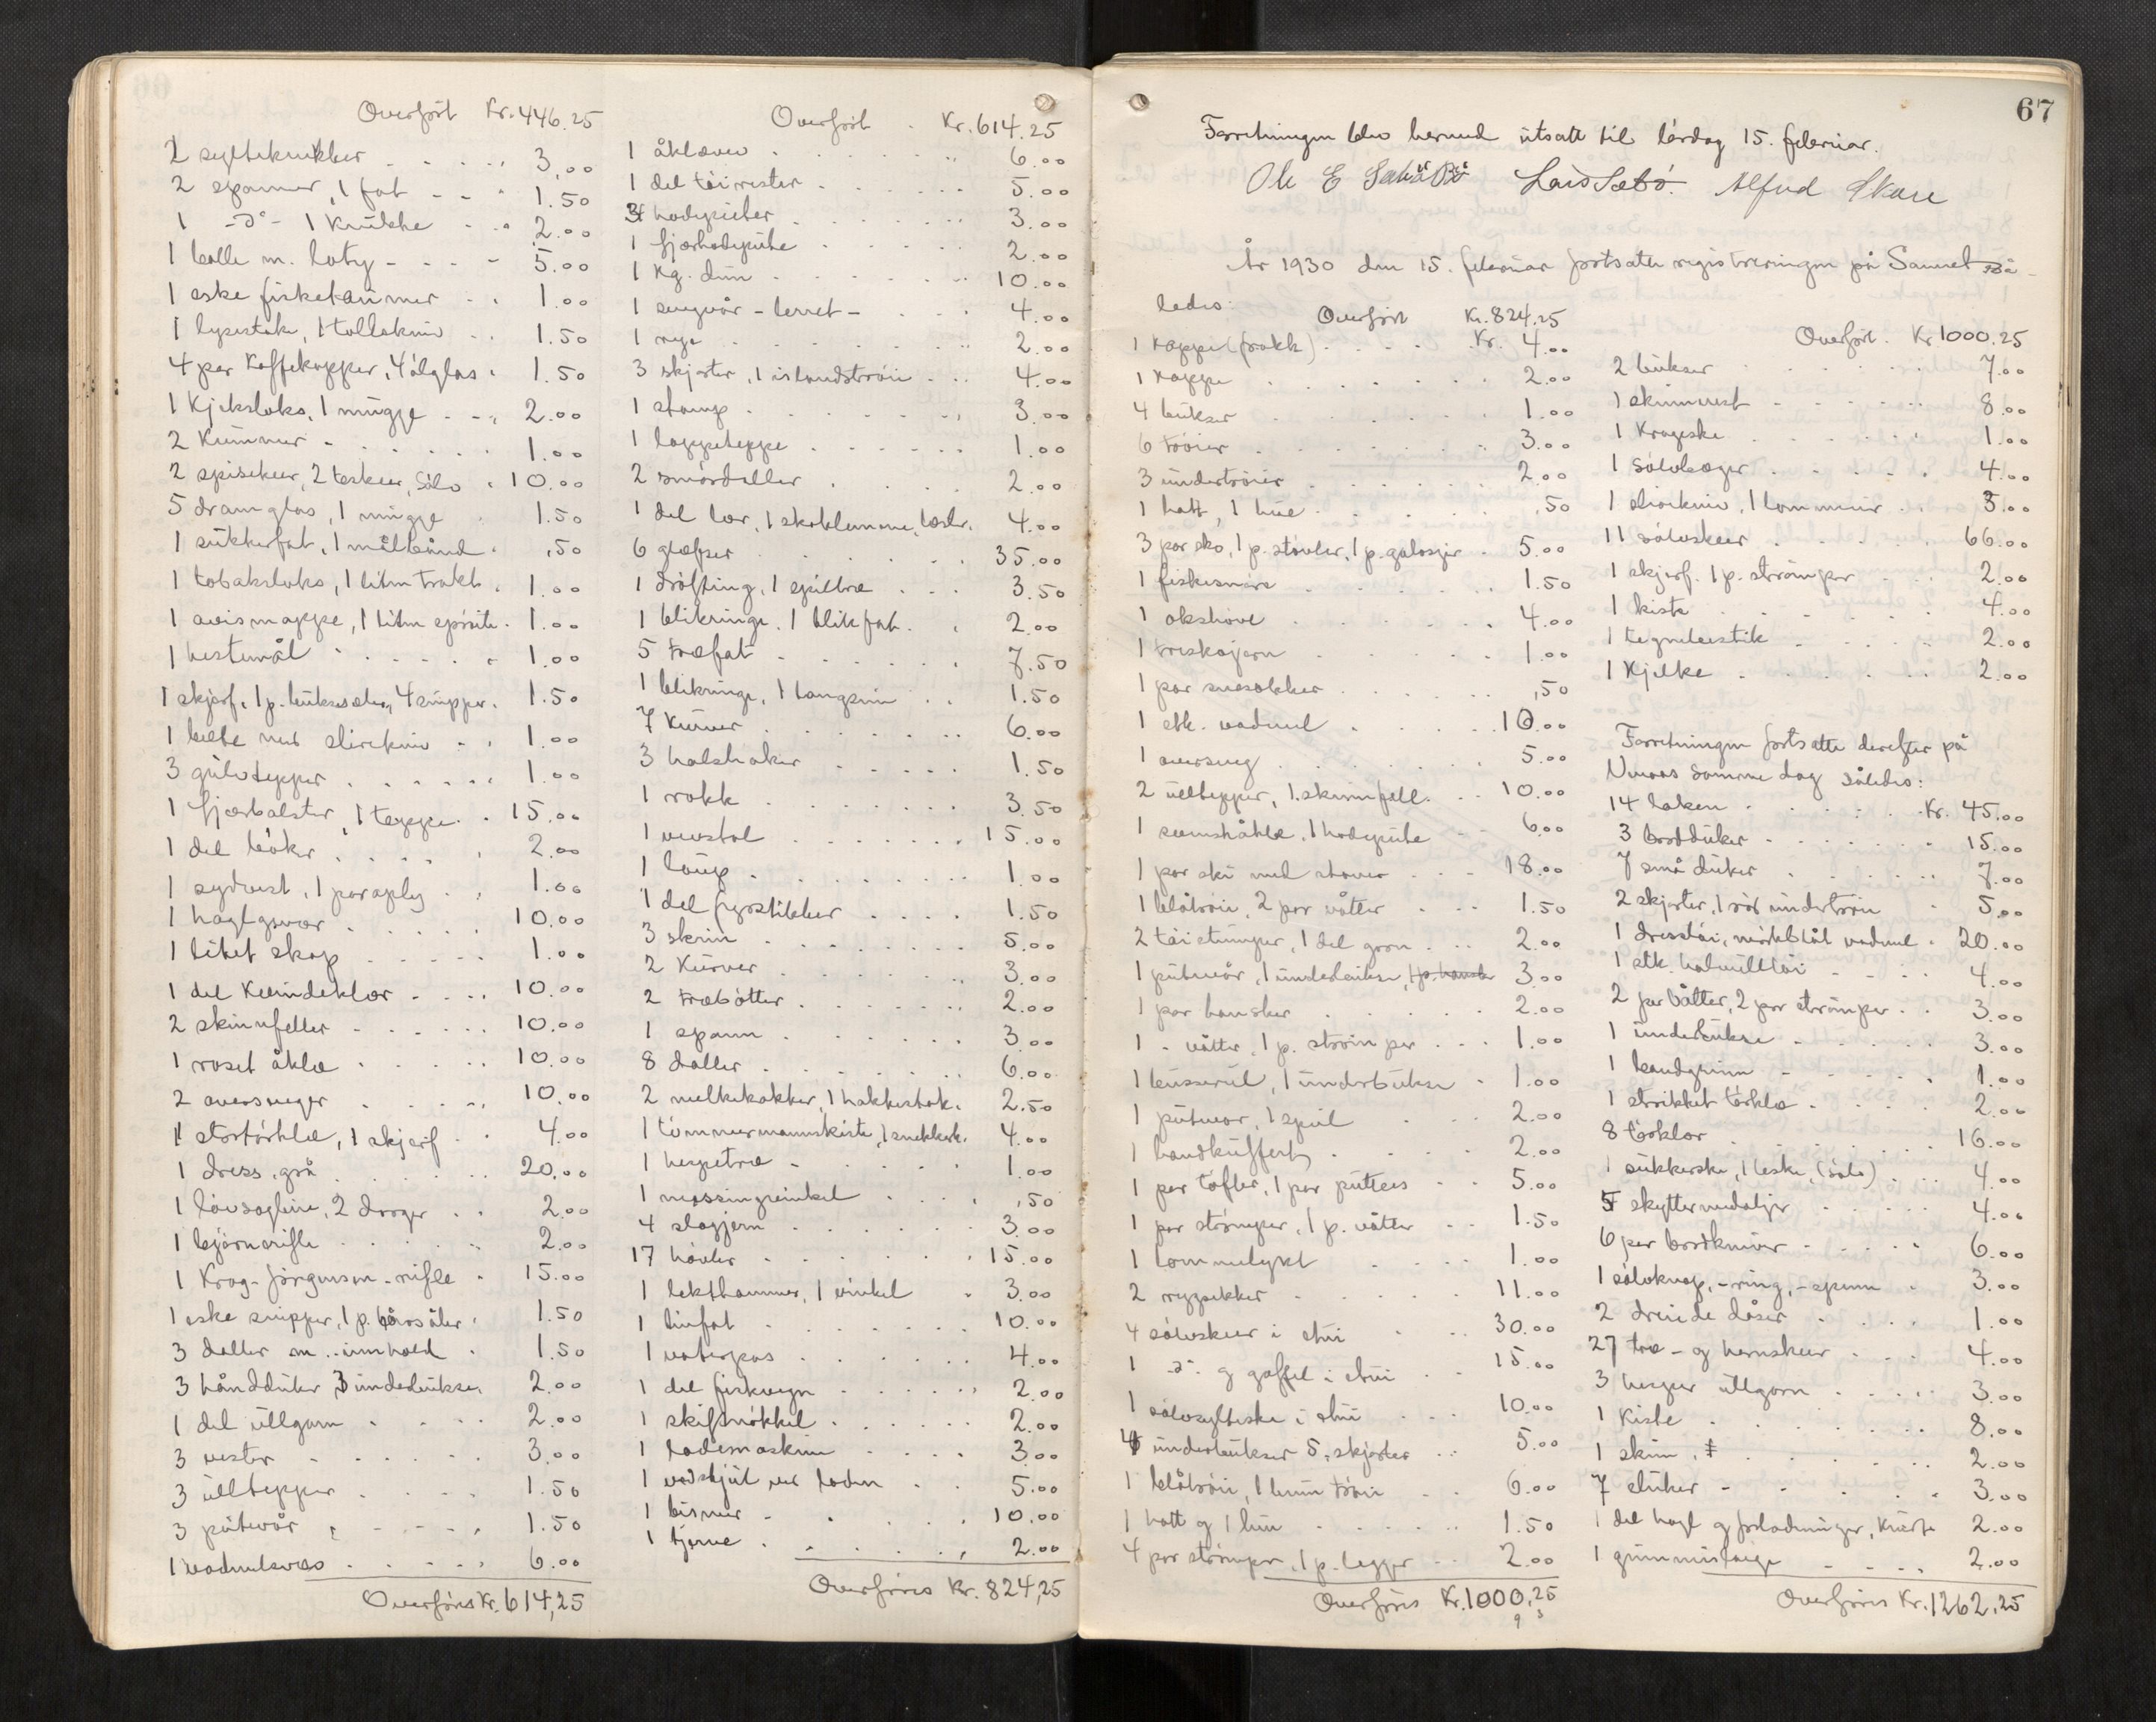 Overført Kr. 446.25
2 syltekrukker 3.00
2 spanner, 1 fat 1.50
1 -d°- 1 krukke 2.00
1 balle m. laty 5.00
1 eske fisketaumer 1.00
1 lysestake, 1 tollekniv 1.50
4 par Kaffekopper, 4 ølglas 1.50
1 Kjeksboks, 1 mugge 2.00
2 Kummer 1.00
2 spiseskeer, 2 teskeer, Sølv 10.00
5 dramglas, 1 mugge 1.50
1 sukkerfat, 1 målbånd .50
1 tobaksboks, 1 liten trakt 1.00
1 avismappe, 1 liten sprøite 1.00
1 hestemål 1.00
1 skjerf, 1 p. bukseseler, 4 snipper 1.50
1 belte med slirekniv 1.00
3 gulvtepper 1.00
1 fjærbolster, 1 teppe 15.00
1 del bøker 2.00
1 sydvest, 1 paraply 1.00
1 haglgevær 10.00
1 litet skap 1.00
1 del Kvindeklær 10.00
2 skinnfeller 10.00
1 roset åklæ 10.00
2 oversenger 10.00
1 stortørklæ, 1 skjerf 4.00
1 dress, grå 20.00
1 løvsagline, 2 drager 2.00
1 bjørnerifle 2.00
1 Krag-Jørgensen-rifle 15.00
1 eske snipper, 1 p. 1.50
3 daller m. innhold 1.50
3 håndduker 3 underbukser 2.00
1 del ullgarn 2.00
3 vester 3.00
3 ulltepper 1.50
3 putevår 1.50
1 vadmelsvæv 6.00
Overføres Kr. 614,25
Overført Kr. 614.25
1 åklævev 6.00
1 del tøirester 5.00
3 hodeputer 3.00
1 fjærhodepute 2.00
1 kg. dun 10.00
1 sengvår - lerret - 4.00
1 rye 2.00
3 skjorter, 1 islandstrøie 4.00
1 stamp 3.00
1 lappeteppe 1.00
2 smørdaller 2.00
1 del lær, 1 skoklemme, læstr. 4.00
6 glefser 35.00
1 drøfting, 1 spilltræ 3.50
1 blikringe, 1 blikfat 2.00
5 træfat 7.50
1 blikringe, 1 langpine 1.50
7 Kurver 6.00
3 halshaker 1.50
1 rokk 3.50
1 vevstol 15.00
1 laup 1.00
1 del fyrstikker 1.50
3 skrin 5.00
2 Kurver 3.00
2 træbøtter 2.00
1 spann 3.00
8 daller 6.00
2 melkekakker, 1 hakkestok. 2.50
1 tømmermannskiste, 1 snekkerk. 4.00
1 hespetræ 1.00
1 messingvinkel .50
4 slagjern 3.00
17 høvler 15.00
1 lekthammer, 1 vinkel 3.00
1 linfat 10.00
1 vaterpas 4.00
1 del fiskvegn 2.00
1 skiftnøkkel 2.00
1 lademaskin 3.00
1 vedskjul ved løden 5.00
1 bismer 10.00
1 tjerne 2.00
Overføres Kr. 824,25
67
Forretningen blev hermed utsatt til lørdag 15. februar.
Ole E Lars Sæbø. Alfred Skare
År 1930 den 15. februar fortsatte registreringen på Sæmet så-
ledes:
Overført Kr. 824.25
1 kappe (frakk) Kr. 4.00
1 kappe 2.00
4 bukser 1.00
6 trøier 3.00
3 undertrøier 2.00
1 hatt, 1 hue .50
3 par sko, 1 p. støvler, 1 p. galosjer 5.00
1 fiskesnøre 1.50
1 økshove 4.00
1 treskojern 1.00
1 par snesokker .50
1 stk. vadmel 10.00
1 overseng 5.00
2 ulltepper, 1 skinnfell 10.00
1 sømståklæ, 1 hodepute 6.00
1 par ski med staver 18.00
1 blåtrøie, 2 par våtter 1.50
2 tøistumper, 1 del garn 2.00
1 putevår, 1 underbukse, 1 p. hansker 3.00
1 par hansker 2.00
1 - våtter, 1 p. strømper 1.00
1 busserul, 1 underbukse 1.00
1 putevar, 1 speil 2.00
1 handkuffert 2.00
1 par tøfler, 1 par puttees 5.00
1 par strømper, 1 p. våtter 1.50
1 lommelykt 1.00
2 ryggsekker 11.00
4 sølvskeer i etui 30.00
1 -d°- og gaffel i etui 15.00
1 sølvsylteske i etui 10.00
4 underbukser 5 skjorter 5.00
1 blåtrøie, 1 brun trøie 6.00
1 hatt og 1 lue 1.50
4 par strømper, 1 p. legger 2.00
Overføres Kr. 1000,25
9 3
Overført Kr 1000.25
2 bukser 7.00
1 skinnvest 8.00
1 Krageske 1.00
1 sølvbæger 4.00
1 slirekniv, 1 lommeur 3.00
11 sølvskeer 66.00
1 skjerf. 1 p. strømper 2.00
1 kiste 4.00
1 tegnebestik 2.00
1 Kjelke 2.00
Forretningen fortsatte derefter på
Nummer samme dag således:
14 laken Kr. 45.00
3 bordduker 15.00
7 små duker 7.00
2 skjorter, 1 rød undertrøie 5.00
1 dresstøi, mørkblåt vadmel 20.00
1 stk. halvulltøi 4.00
2 par våtter, 2 par strømper 3.00
1 underbukse 3.00
1 bandgrinn 1.00
1 strikket tørklæ 2.00
8 tørklær 16.00
1 sukkerske, 1 teske, (sølv) 4.00
5 skyttermedaljer 4.00
6 par bordkniver 6.00
1 sølvknap, -ring, -spenn 3.00
2 dreiede dåser 1.00
27 træ- og hornskeer 4.00
3 hesper ullgarn 3.00
1 Kiste 8.00
1 skrin 2.00
7 duker 3.00
1 del hagl og forladninger, Krutt 2.00
1 gummislange 2.00
Overføres Kr. 1262.25